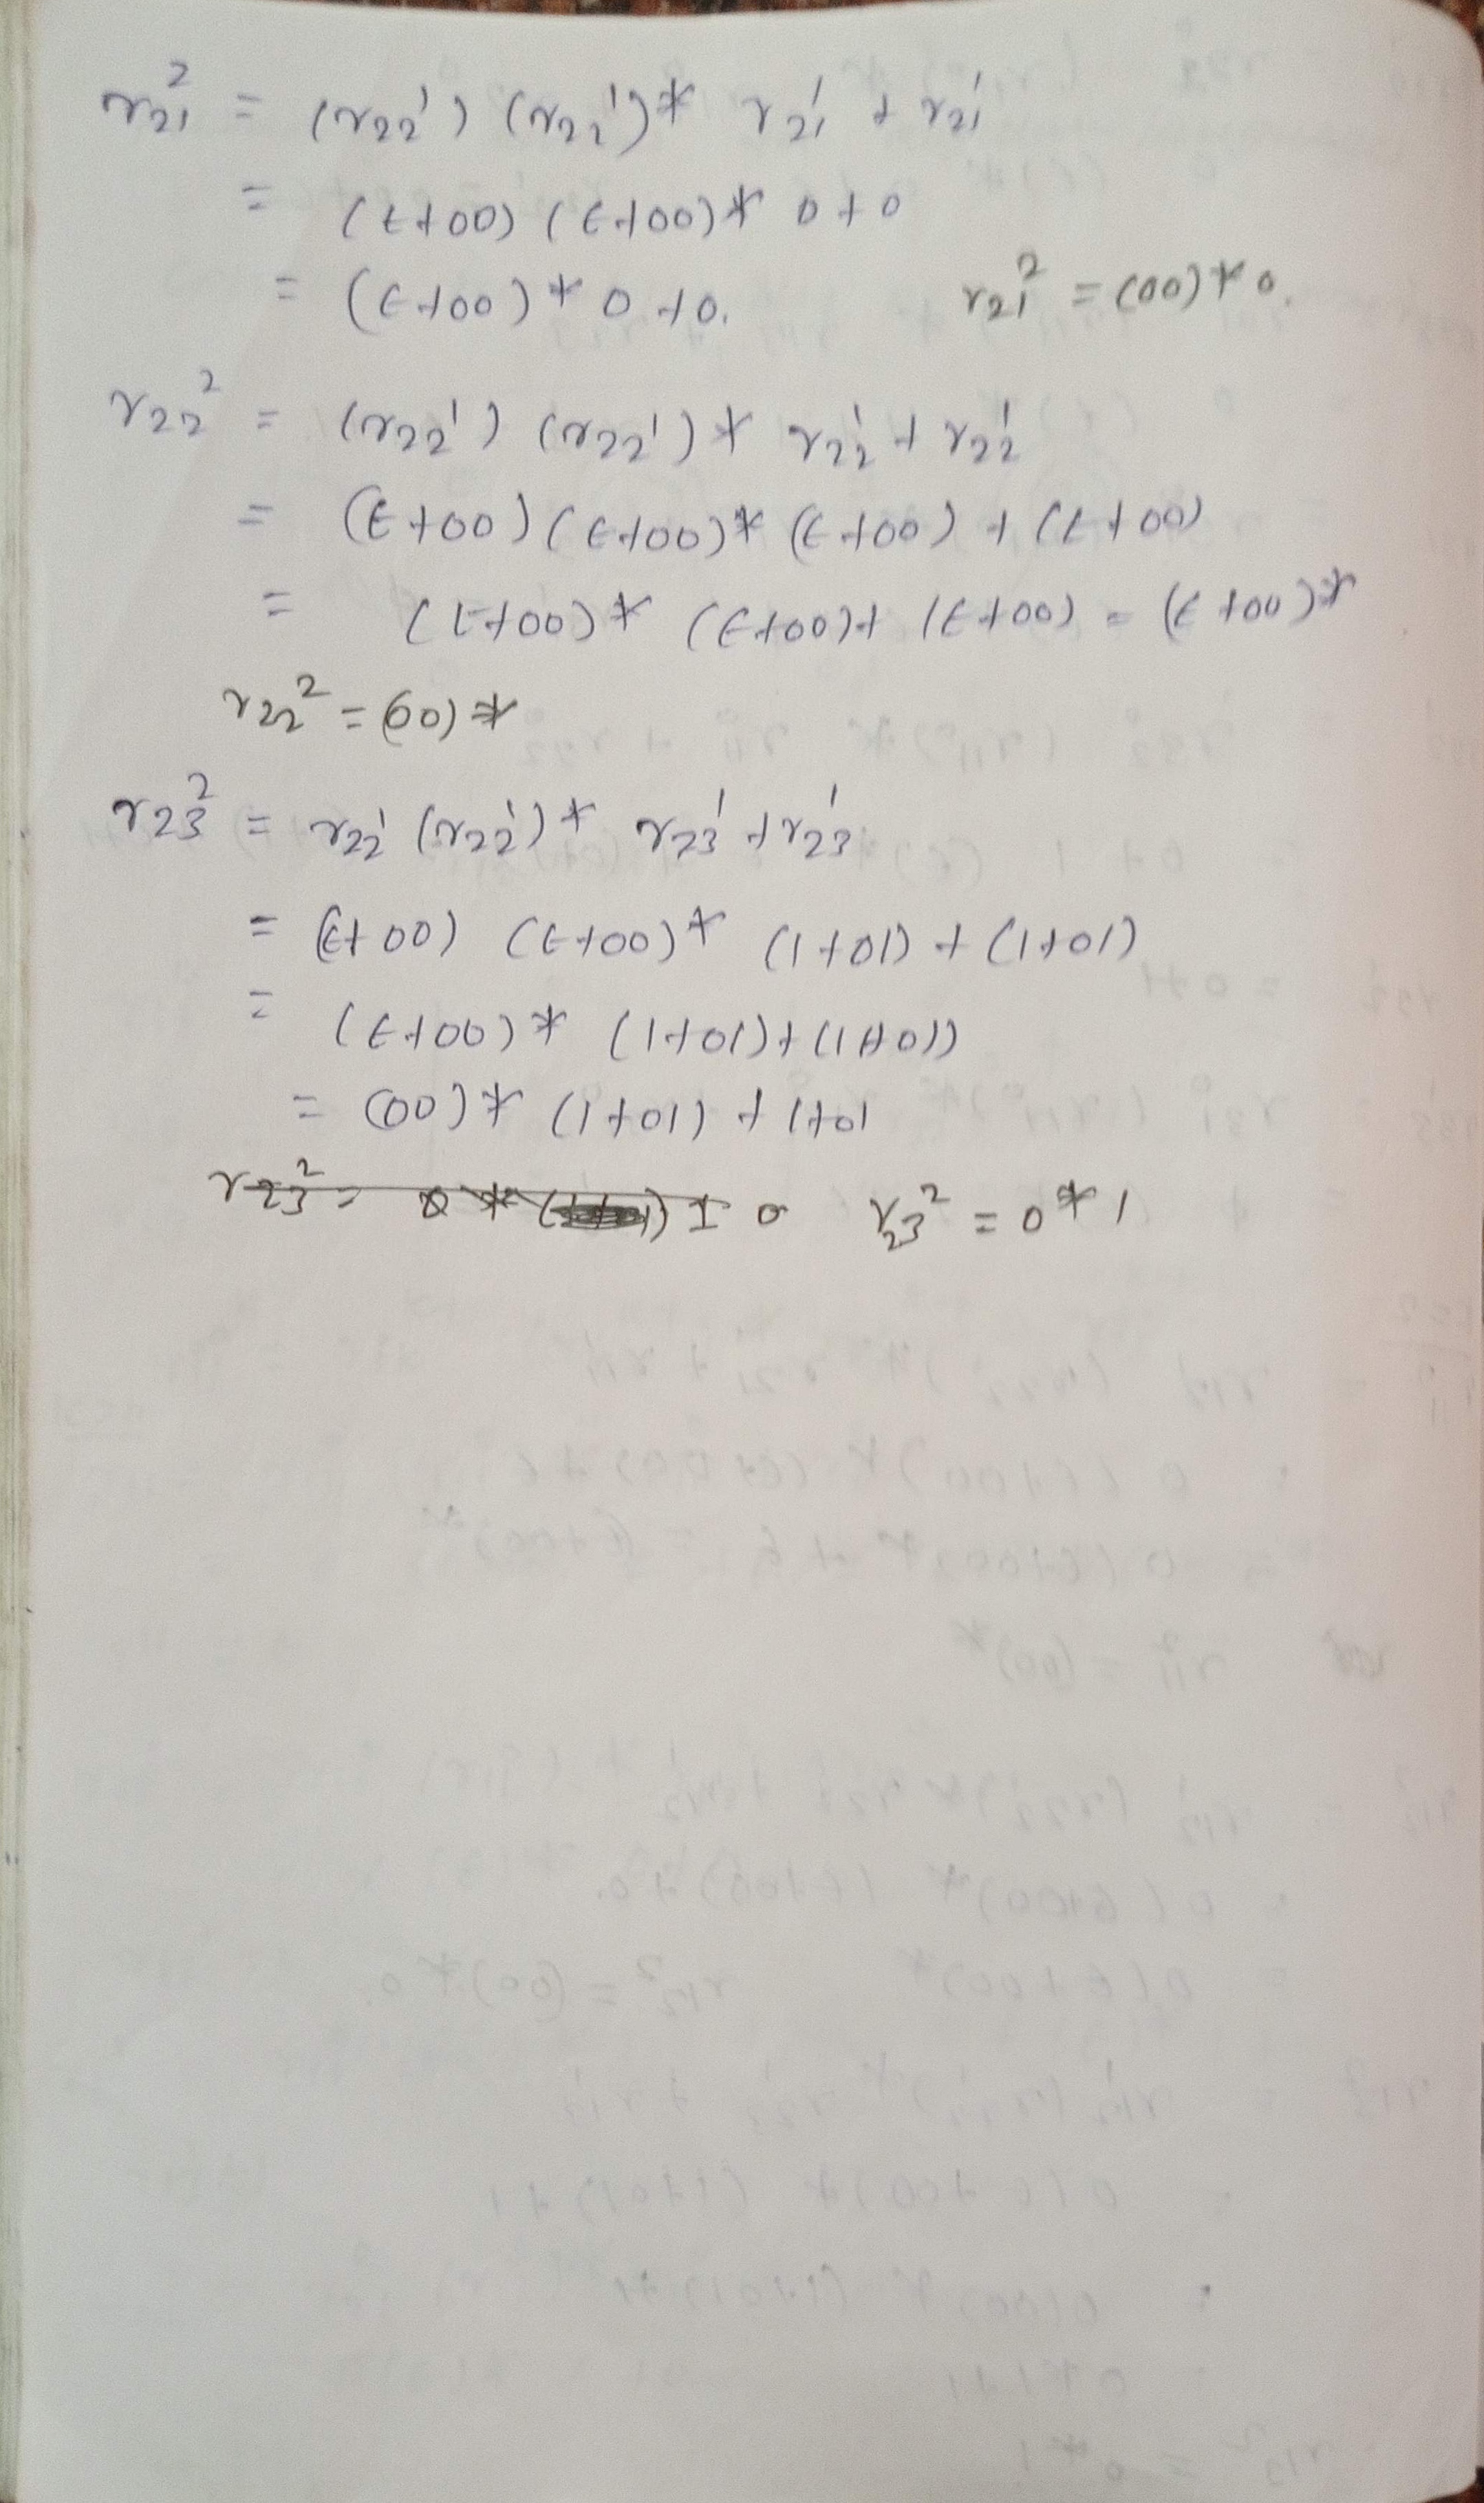 r₂₁² = (r₂₂¹) (r₂₂¹)* r₂₁¹ + r₂₁¹
= (ε+00) (ε+00)* 0+0
= (ε+00)* 0+0. r₂₁² = (00)*0.
r₂₂² = (r₂₂¹) (r₂₂¹)* r₂₂¹ + r₂₂¹
= (ε+00) (ε+00)* (ε+00) + (ε+00)
= (ε+00)* (ε+00)+ (ε+00) = (ε+00)*
r₂₂² = (00)*
r₂₃² = r₂₂¹ (r₂₂¹)* r₂₃¹ + r₂₃¹
= (ε+00) (ε+00)* (1+01) + (1+01)
= (ε+00)* (1+01)+(1+01)
= (00)* (1+01) + 1+01
r₂₃² = 0* r₂₃² = 0*1